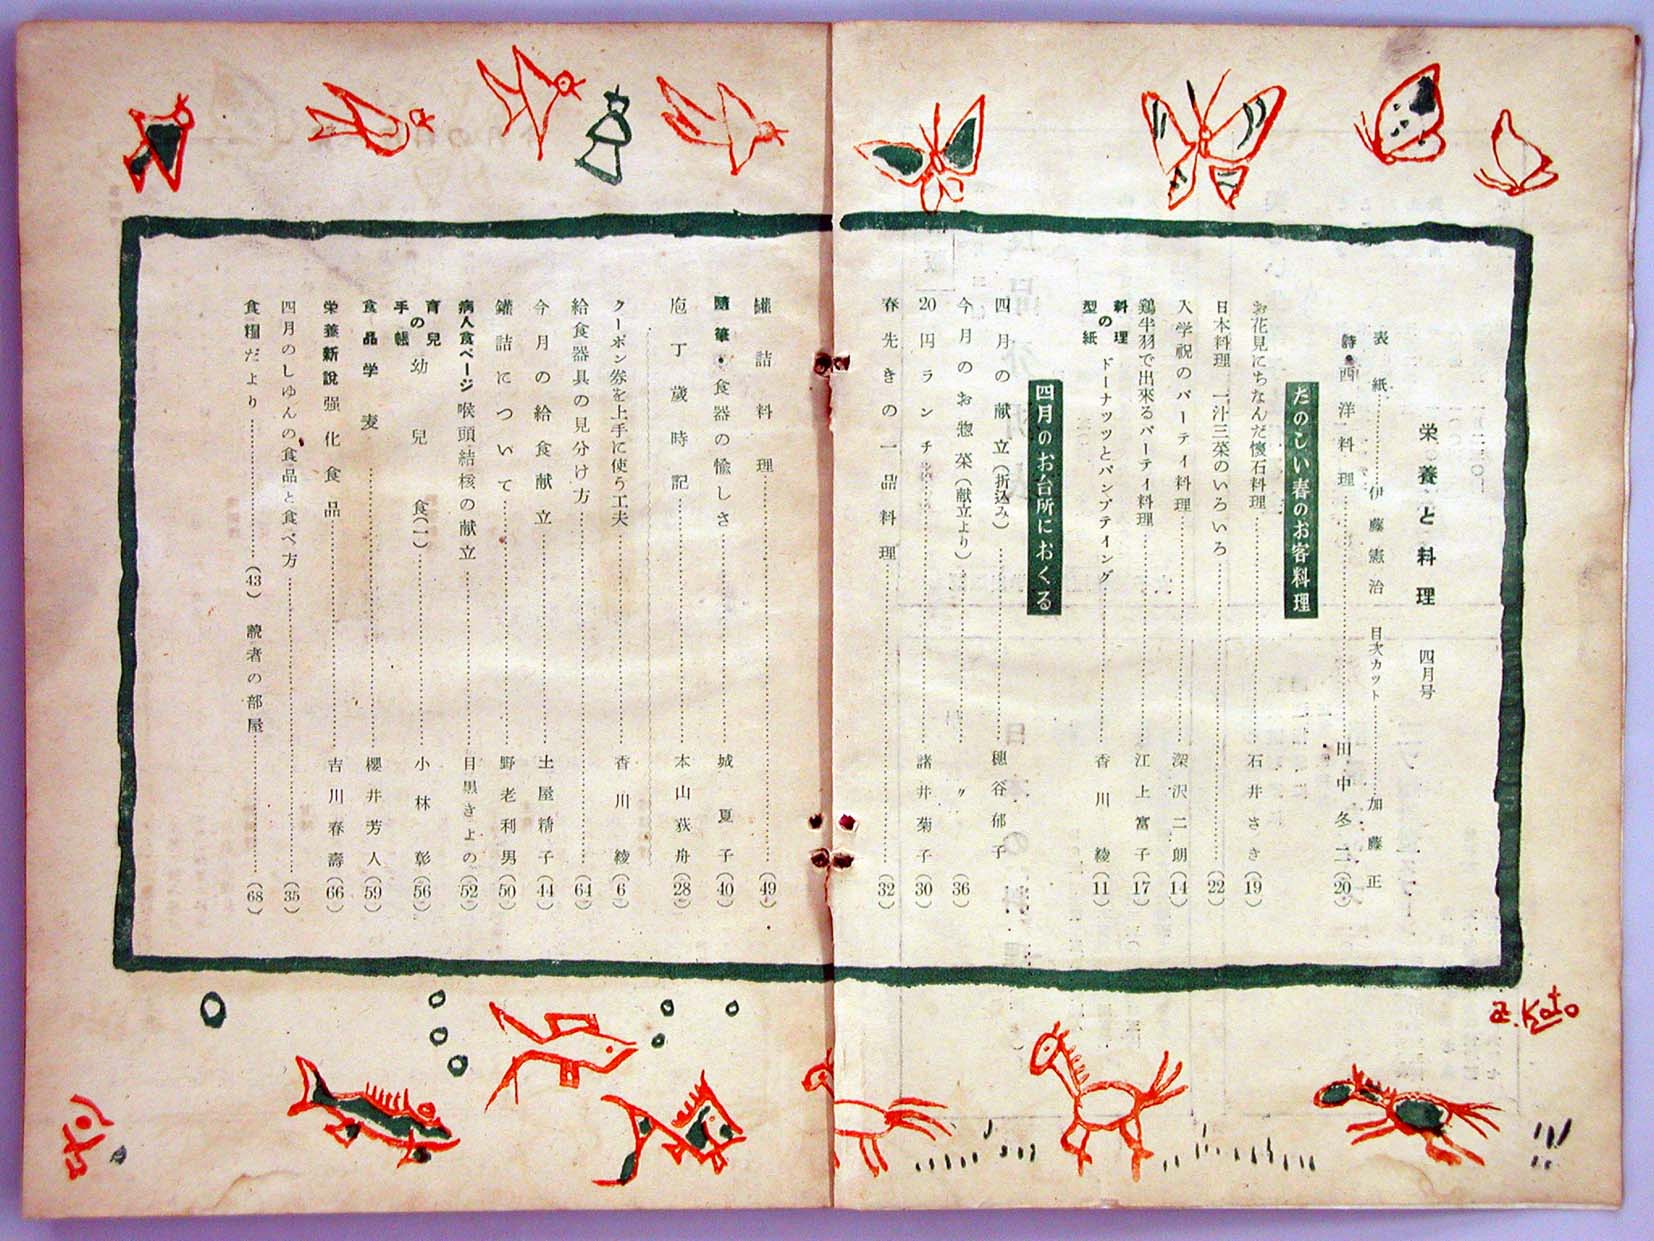 栄養と料理 四月号
表紙……伊藤憲治 目次カット……加藤正
詩・西洋料理……田中冬二(20)
たのしい春のお客料理
お花見にちなんだ懐石料理……石井さき(19)
日本料理 一汁三菜のいろいろ……(22)
入学祝のパーティ料理……深沢二朗(14)
鶏半羽で出來るパーティ料理……江上富子(17)
料理の型紙 ドーナッツとパンプティング……香川綾(11)
四月のお台所におくる
四月の献立(折込み)……穂谷郁子
今月のお惣菜(献立より)……〃(36)
20円ランチ……諸井菊子(30)
春先きの一品料理……(32)
罐詰料理……(49)
隨筆・食器の愉しさ……城夏子(40)
庖丁歳時記……本山荻舟(28)
クーポン券を上手に使う工夫……香川綾(6)
給食器具の見分け方……(64)
今月の給食献立……土屋精子(44)
罐詰について……野老利男(50)
病人食ページ 喉頭結核の献立……目黒きよの(52)
育兒の手帳 幼兒食(一)……小林彰(56)
食品学 麦……櫻井芳人(59)
栄養新説 强化食品……吉川春壽(66)
四月のしゆんの食品と食べ方……(35)
食糧だより……(43) 読者の部屋……(68)
a. Kato